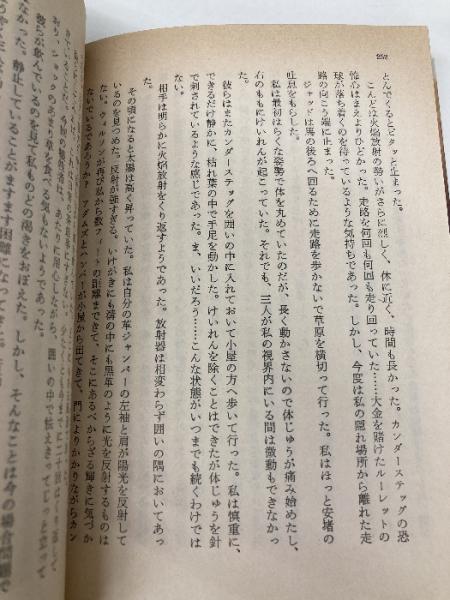 252
とんでくるとピタッと止まった。
こんどは火焔放射の勢いがさらに烈しく、体に近く、時間も長かった。カンダーステッグの恐
怖心はまえよりひどかった。走路を何回も何回も走り回っていた……大金を賭けたルーレットの
球が落ち着くのを待っているような気持ちであった。しかし、今度は私の隠れ場所から離れた走
路の向こう端に止まった。
ジャッドは馬の後ろへ回るために走路を歩かないで草原を横切って行った。私はほっと安堵の
吐息をもらした。
私は最初はらくな姿勢で体を丸めていたのだが、長く動かさないので体じゅうが痛み始めたし、
右のももにけいれんが起こっていた。それでも、三人が私の視界内にいる間は微動もできなかっ
た。
彼らはまたカンダーステッグを囲いの中に入れておいて小屋の方へ歩いて行った。私は慎重に、
できるだけ静かに、枯れ葉の中で手足を動かした。けいれんを除くことはできたが体じゅうを針
で刺されているような感じであった。ま、いいだろう……こんな状態がいつまでも続くわけでは
ない。
相手は明らかに火焔放射をくり返すようであった。放射器は相変わらず囲いの隅においてあっ
た。
その頃になると太陽は高く昇っていた。私は自分の革ジャンパーの左袖と肩が陽光を反射して
いるのを見つめた。反射が強すぎる。いけがきにも溝の中にも黒革のように光を反射するものは
ない。ウィルソンが再び私から数フィートの距離まできて、そこにあるべからざる輝きに気づか
ないでいるであろうか？
アダムズとハンバーが小屋から出てきて、門によりかかりながらカン
なかった。静止していることがますます困難になってきた。しかし、そんなことは今の場合問題で